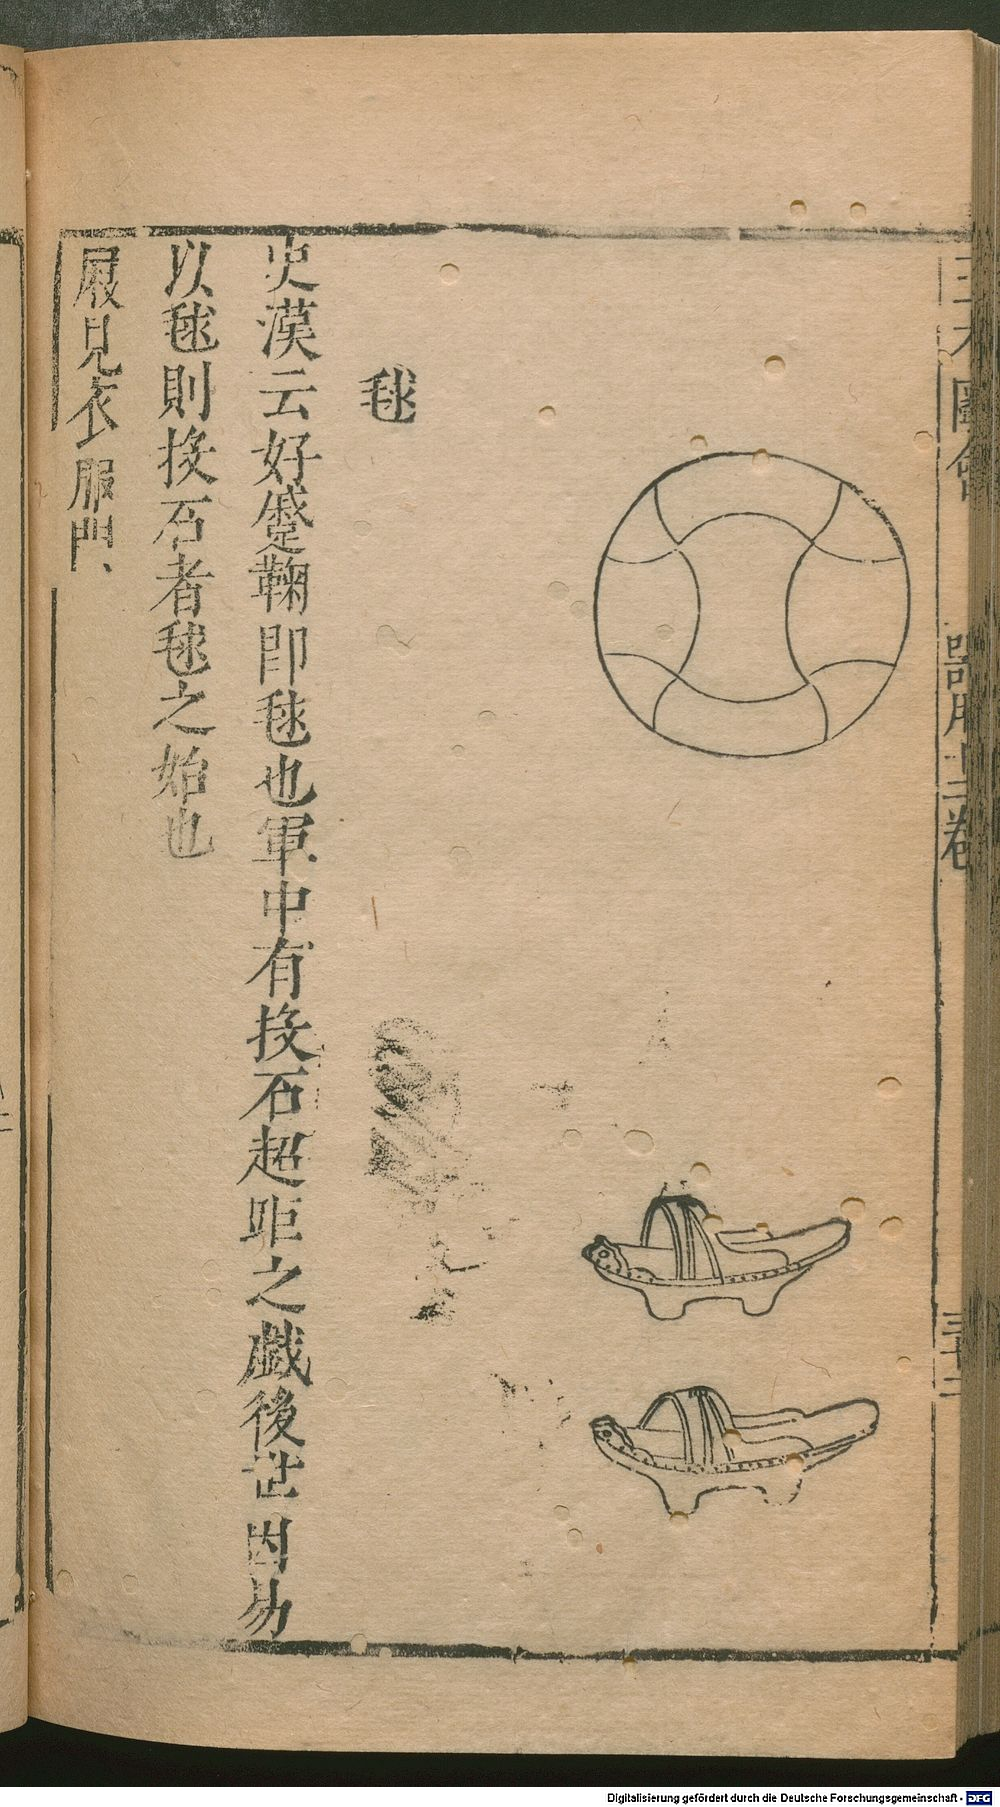 三才圖會 器用十二卷 三十二
毬
史漢云好蹙鞠即毬也軍中有投石超距之戲後世因易
以毬則投石者毬之始也
屐見衣服門
Digitalisierung gefördert durch die Deutsche Forschungsgemeinschaft - DFG